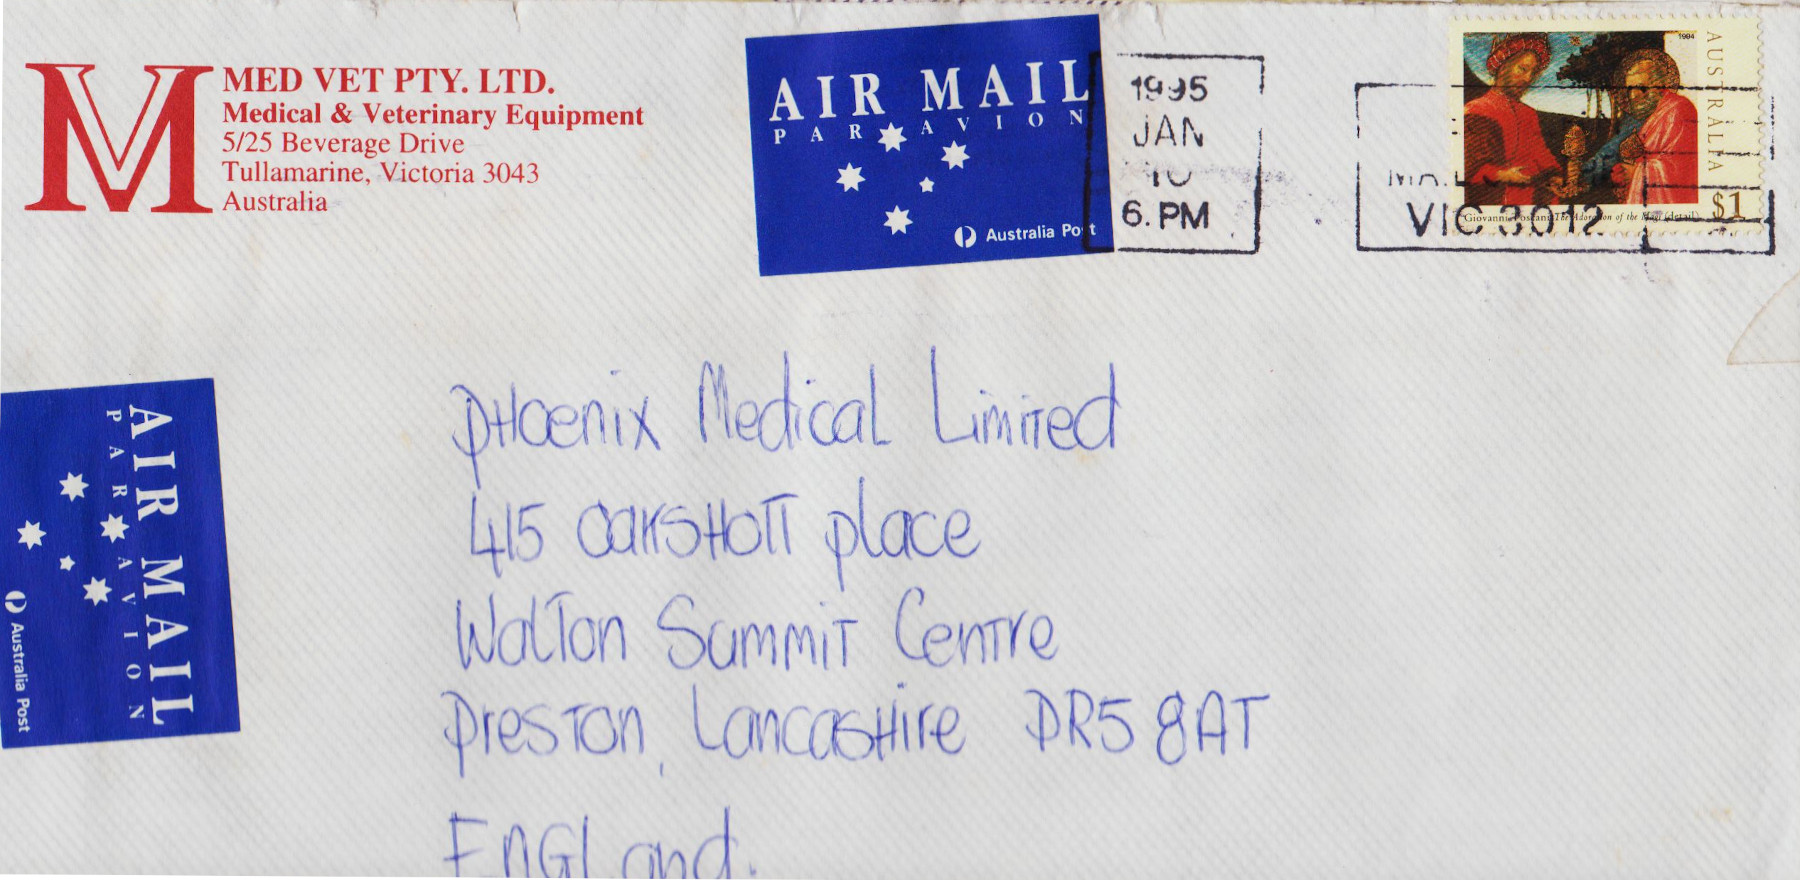 M
MED VET PTY. LTD.
Medical & Veterinary Equipment
5/25 Beverage Drive
Tullamarine, Victoria 3043
Australia
AIR MAIL
PAR AVION
Australia Post
1995
JAN
10
6. PM
VIC 3012
1994
AUSTRALIA
$1
Giovanni Toscani The Adoration of the Magi (detail)
AIR MAIL
PAR AVION
Australia Post
PHoenix Medical Limited
415 OakSHoTT place
WalTon SummiT CenTre
PresTon, LancasHire PR5 8AT
EnGLand.